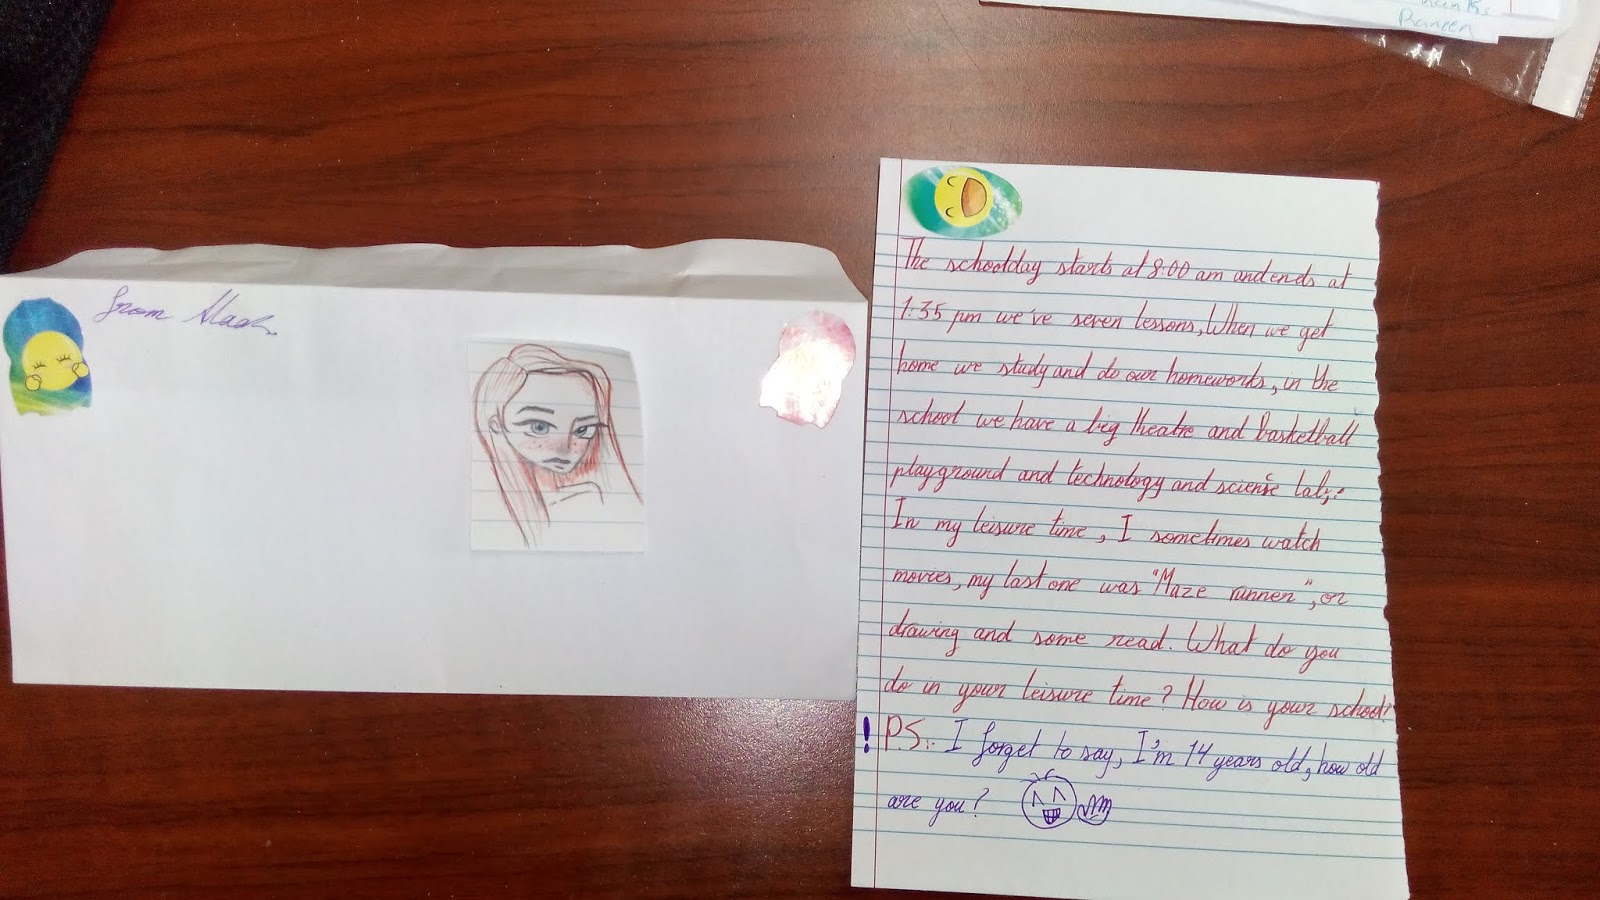 from Alaa
The schoolday starts at 8:00 am and ends at
1:35 pm we've seven lessons, When we get
home we study and do our homeworks, in the
school we have a big theatre and basketball
playground and technology and science lab,:
In my leisure time, I sometimes watch
movies, my last one was "Maze runner", or
drawing and some read. What do you
do in your leisure time? How is your school?
! P.S.: I forget to say, I'm 14 years old, how old
are you?